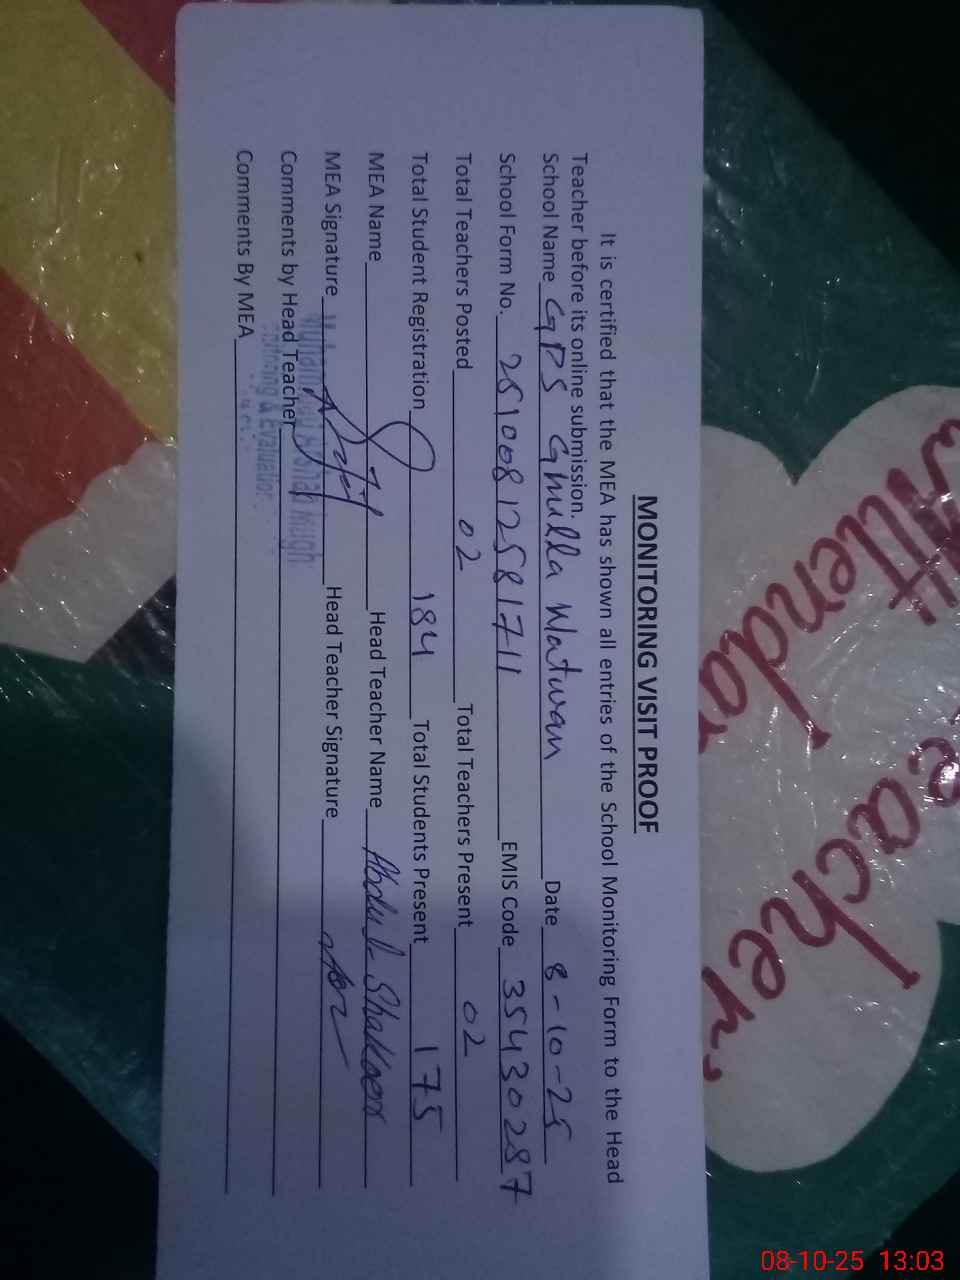 Teacher
Attendar
MONITORING VISIT PROOF
It is certified that the MEA has shown all entries of the School Monitoring Form to the Head
Teacher before its online submission.
School Name GPS Ghulla Watwan Date 8-10-25
School Form No. 25100812581711 EMIS Code 35430287
Total Teachers Posted 02 Total Teachers Present 02
Total Student Registration 184 Total Students Present 175
MEA Name Head Teacher Name Abdul Shakoor
MEA Signature Head Teacher Signature
Comments by Head Teacher
Comments By MEA
08-10-25 13:03